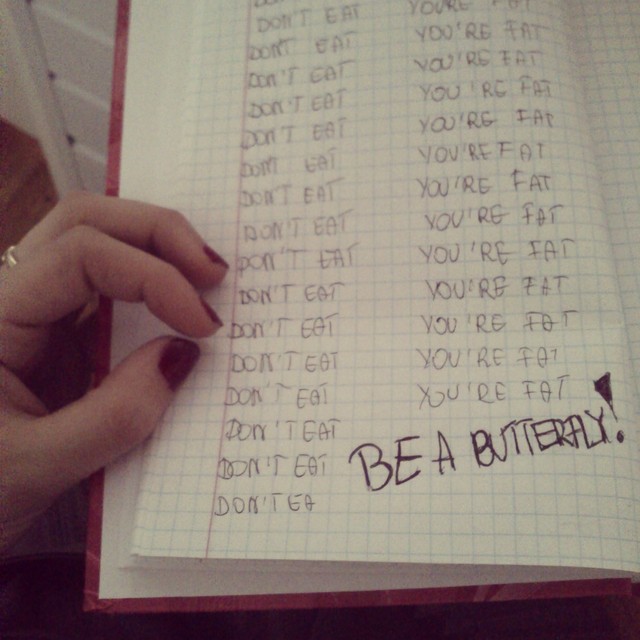 DON'T EAT YOU'RE FAT
DON'T EAT YOU'RE FAT
DON'T EAT YOU'RE FAT
DON'T EAT YOU'RE FAT
DON'T EAT YOU'RE FAT
DON'T EAT YOU'RE FAT
DON'T EAT YOU'RE FAT
DON'T EAT YOU'RE FAT
DON'T EAT YOU'RE FAT
DON'T EAT YOU'RE FAT
DON'T EAT YOU'RE FAT
DON'T EAT YOU'RE FAT
DON'T EAT YOU'RE FAT
DON'T EAT
DON'T EAT BE A BUTTERFLY!
DON'T EA